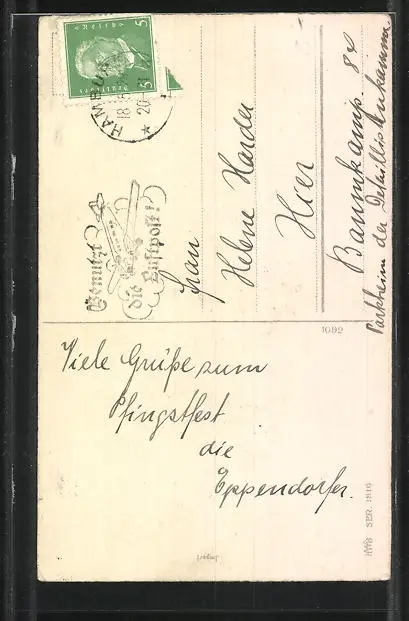 Deutsches Reich
5 5
HAMBURG
18.5
20-21
Benutzt
die Luftpost!
Frau
Helene Harder
Hier
Baumkamp 84
Parkheim der Detaillistenkammer
1092
Viele Grüße zum
Pfingstfest
die
Eppendorfer.
Import
HWB SER. 1816